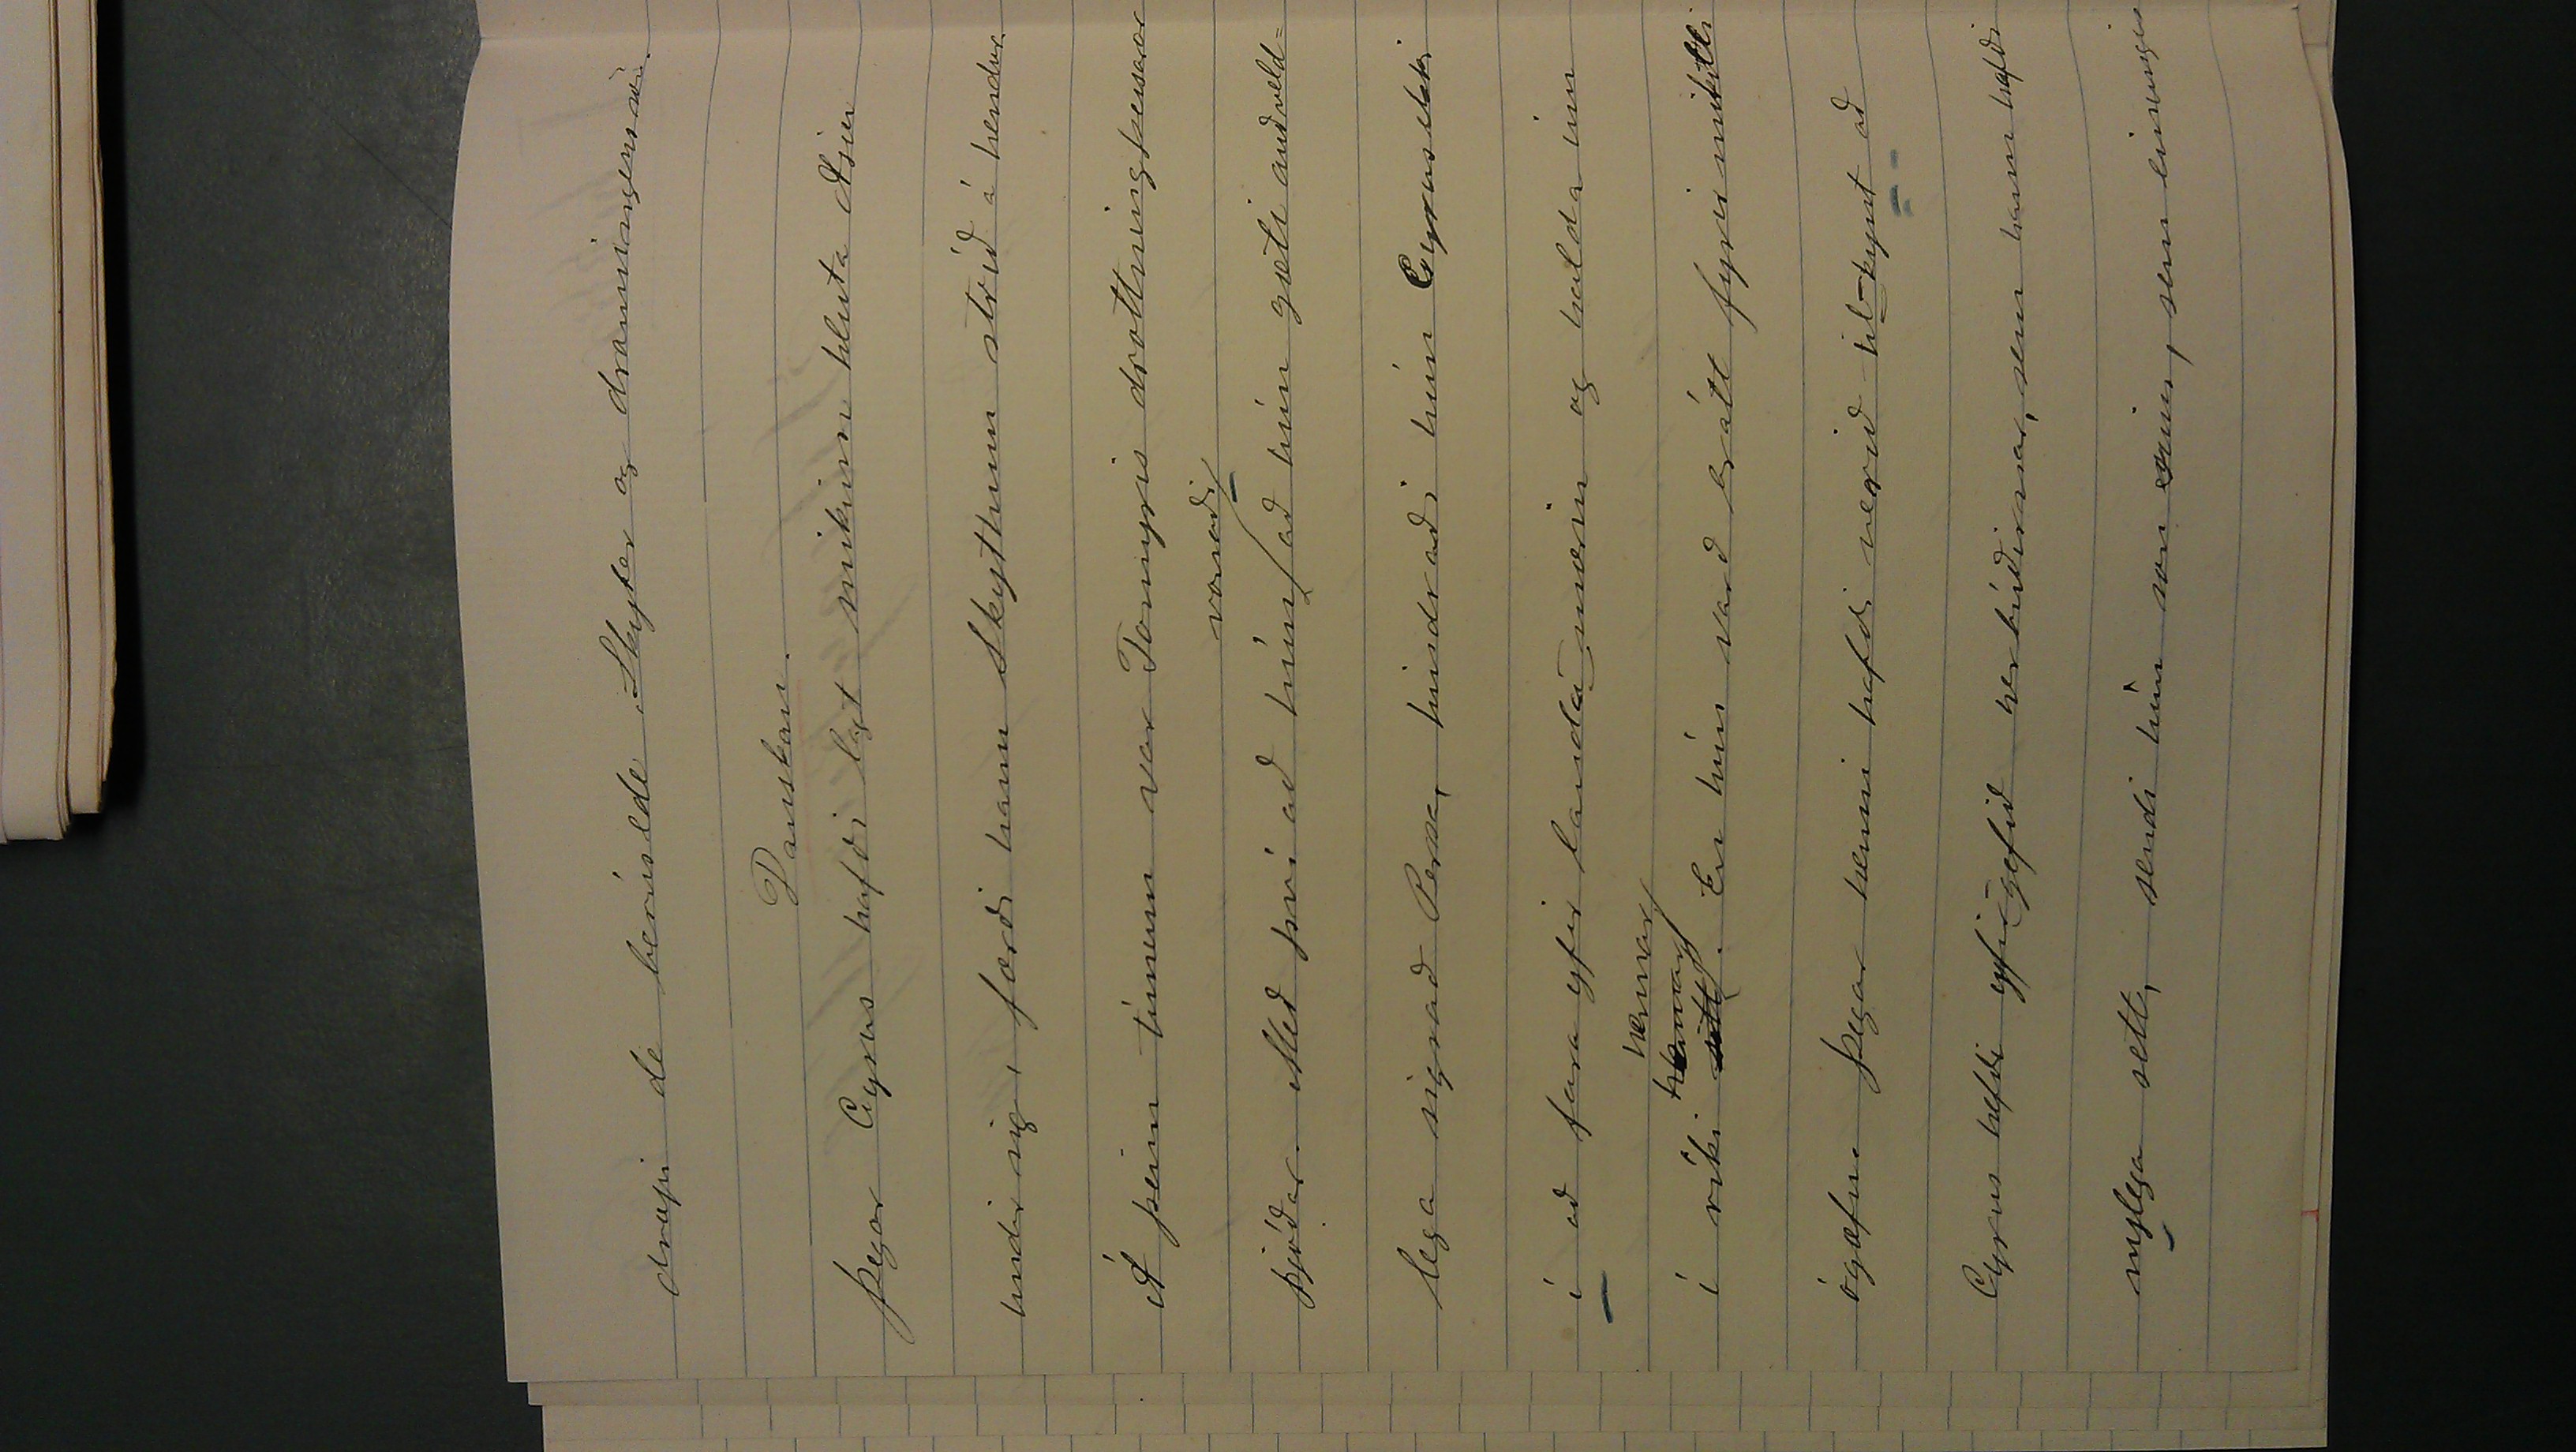 drap de berusede Skyter og dronningens sön.
Danskan.
Þegar Cyrus hafdi lagt mikinn hluta Asíu
undir sig, færdi hann Skythum stríd á hendur.
Á þeim tímum var Tomyris drottning þessarar
vonadi
þjódar. Med því ad hún ad hún gæti audveld=
lega sigrad Persa, hindradi hún Cyrus ekki
í ad fara yfir landamærin og halda inn
hennar
hennar
í ríki sitt. En hún vard brátt fyrir mikilli
ógæfu. Þegar henni hafdi verid til-kynt ad
Cyrus hefdi yfirgefid herbúdirnar, sem hann hafdi
nýlega sett, sendi hún son sinn, sem einungis